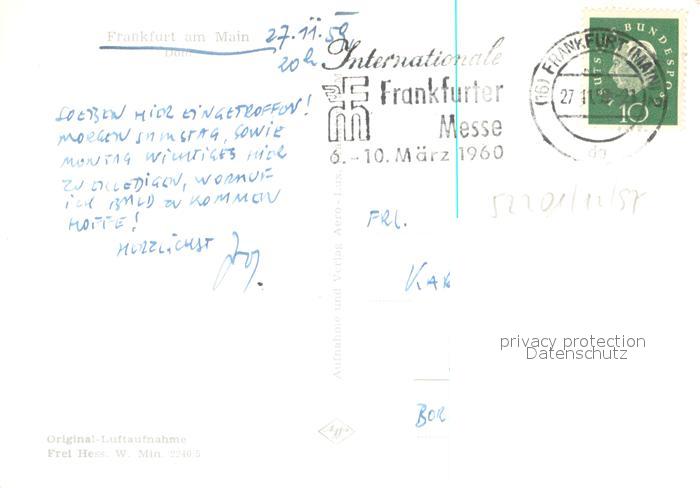 Frankfurt am Main
27.11.59
Dom
20h
SOEBEN HIER EINGETROFFEN!
MORGEN SAMSTAG, SOWIE
MONTAG WICHTIGES HIER
ZU ERLEDIGEN, WORAUF
ICH BALD ZU KOMMEN
HOFFE!
HERZLICHST
Original-Luftaufnahme
Frei Hess. W. Min. 2240/5
Aufnahme und Verlag Aero-Lux,
Internationale
Frankfurter
Messe
6.-10. März 1960
(16) FRANKFURT (MAIN) 2
27.11.
DEUTSCHE BUNDESPOST
10
FRL.
KAR
BOR
privacy protection
Datenschutz